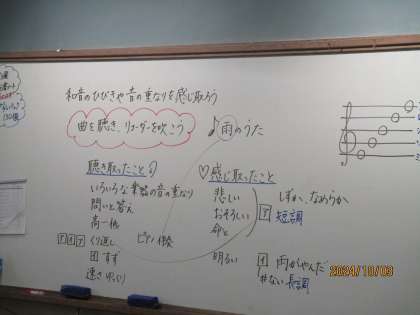 和音のひびきや音の重なりを感じ取ろう
曲を聴き、リコーダーを吹こう
雨のうた
聴き取ったこと
いろいろな楽器の音の重なり
問いと答え
高→低
ア イ ア くり返し
ピアノ伴奏
すず
速さ ゆっくり
♡感じ取ったこと
悲しい
おそろしい
明るい
しずか、なめらか
ア 短調
イ 雨がやんだ
#ない 長調
2024/10/03